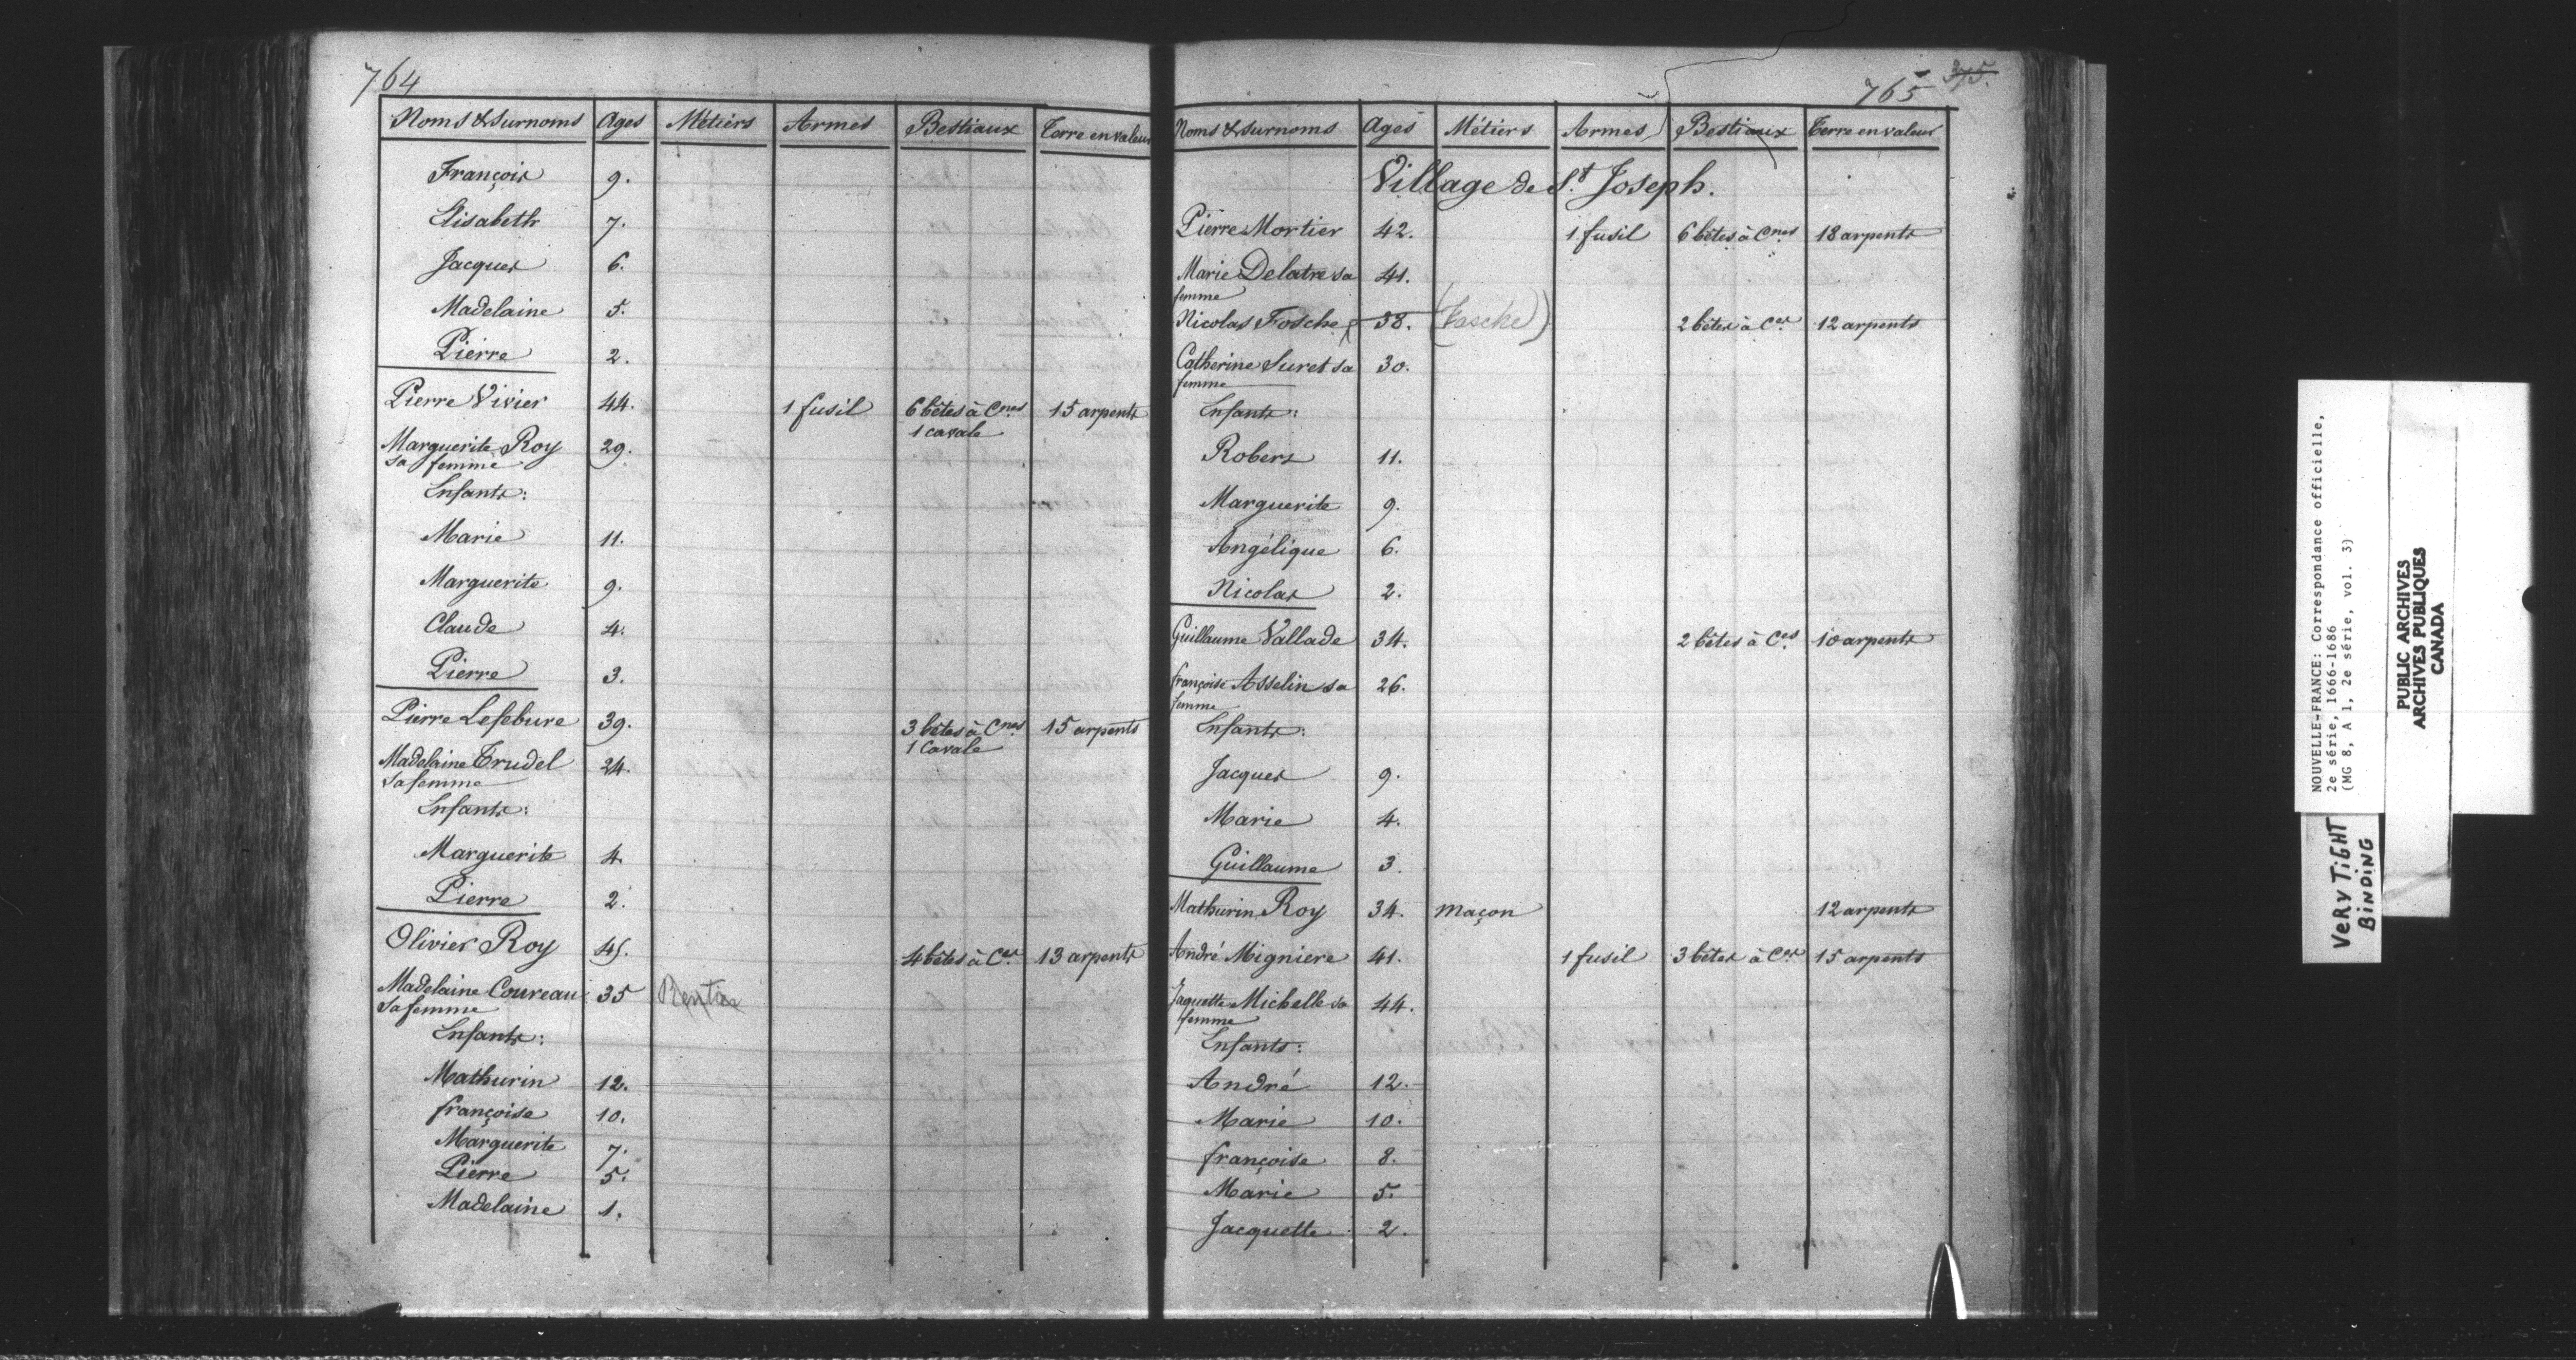 764
Noms & Surnoms Ages Métiers Armes Bestiaux Terre en valeur
François 9.
Elisabeth 7.
Jacques 6.
Madelaine 5.
Pierre 2.
Pierre Vivier 44. 1 fusil 6 bêtes à Cnes 15 arpents
1 cavale
Marguerite Roy 29.
sa femme
Enfants:
Marie 11.
Marguerite 9.
Claude 4.
Pierre 3.
Pierre Lefebure 39. 3 bêtes à Cnes 15 arpents
1 Cavale
Madelaine Trudel 24.
sa femme
Enfants:
Marguerite 4.
Pierre 2.
Olivier Roy 45. 4 bêtes à Ces 13 arpents
Madelaine Coureau 35
sa femme
Enfants:
Mathurin 12.
françoise 10.
Marguerite 7.
Pierre 5.
Madelaine 1.
765 375.
Noms & Surnoms Ages Métiers Armes Bestiaux Terre en valeur
Village de St Joseph.
Pierre Mortier 42. 1 fusil 6 bêtes à Cnes 18 arpents
Marie Delatre sa 41.
femme
Nicolas Fosche 38. (Fasche) 2 bêtes à Ces 12 arpents
Catherine Suret sa 30.
femme
Enfants:
Robers 11.
Marguerite 9.
Angélique 6.
Nicolas 2.
Guillaume Vallade 34. 2 bêtes à Ces 10 arpents
françoise Asselin sa 26.
femme
Enfants:
Jacques 9.
Marie 4.
Guillaume 3.
Mathurin Roy 34. maçon 12 arpents
André Migniere 41. 1 fusil 3 bêtes à Ces 15 arpents
Jaquette Michelle sa 44.
femme
Enfants:
André 12.
Marie 10.
françoise 8.
Marie 5.
Jacquette 2.
NOUVELLE-FRANCE: Correspondance officielle,
2e série, 1666-1686
(MG 8, A 1, 2e série, vol. 3)
PUBLIC ARCHIVES
ARCHIVES PUBLIQUES
CANADA
VERY TiGHT
BINDING